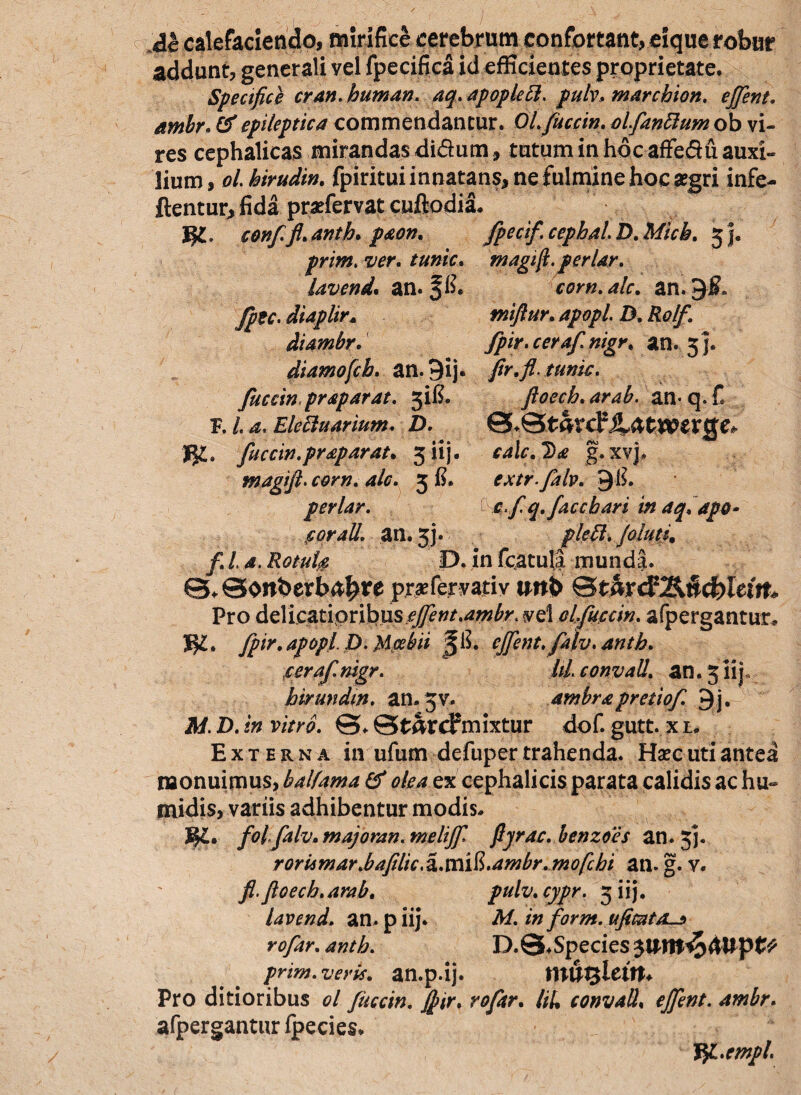 dè calefaciendo, mirificè cerebrum confortant, eique robur
addunt, generali vel ſpecificâ id efficientes proprietate.
Specificè cran. human. aq. apoplect. pulv. marchion. eſſent.
ambr. & epileptica commendantur. Ol. ſuccin. ol. ſanctum ob vi-
res cephalicas mirandas dictum, tutum in hôc affectû auxi-
lium, ol. hirudin. ſpiritui innatans, ne fulmine hoc ægri infe-
ſtentur, fidâ præſervat cuſtodiâ.
℞. conſ. fl. anth. pæon.
prim. ver. tunic.
lavend. an. ℥ß.
ſpec. diaplir.
diambr.
diamoſch. an. ℈ij.
ſuccin. præparat. ʒiß.
F. l. a. Electuarium. D.
ſpecif. cephal. D. Mich. ʒj.
magiſt. perlar.
corn. alc. an. ℈ß.
miſtur. apopl. D. Rolf.
ſpir. ceraſ. nigr. an. ʒj.
ſir. fl. tunic.
ſtoech. arab. an. q. ſ.
S. Starck Latwerge.
℞. ſuccin. præparat. ʒiij.
magiſt. corn. alc. ʒß.
perlar.
corall. an. ʒj.
f. l. a. Rotulæ
calc. ☉æ g. xvj.
extr. ſalv. ℈ß.
c. ſ. q. ſacchari in aq. apo-
plect. ſoluti.
D. in ſcatulâ mundâ.
S. Sonderbahre præſervativ und Starck Küchlein.
Pro delicatioribus eſſent. ambr. vel ol. ſuccin. aſpergantur.
℞. ſpir. apopl. D. Mœbii ℥ß.
ceraſ. nigr.
hirundin. an. ʒv.
eſſent. ſalv. anth.
lil. convall. an. ʒiij.
ambræ pretioſ. ℈j.
M. D. in vitro. S. Starck mixtur doſ. gutt. XL.
Externa in uſum deſuper trahenda. Hæc uti anteà
monuimus, balſama & olea ex cephalicis parata calidis ac hu-
midis, variis adhibentur modis.
℞. fol. ſalv. majoran. meliſſ.
rorismar. baſilic. ā. miß.
fl. ſtoech. arab.
lavend. an. p iij.
roſar. anth.
prim. veris. an. p. ij.
ſtyrac. benzoës an. ʒj.
ambr. moſchi an. g. v.
pulv. cypr. ʒiij.
M. in form. uſitata
D. S. Species zum Haupt-
mützlein.
Pro ditioribus ol ſuccin. ſpir. roſar. lil. convall. eſſent. ambr.
aſpergantur ſpecies.
℞. empl.